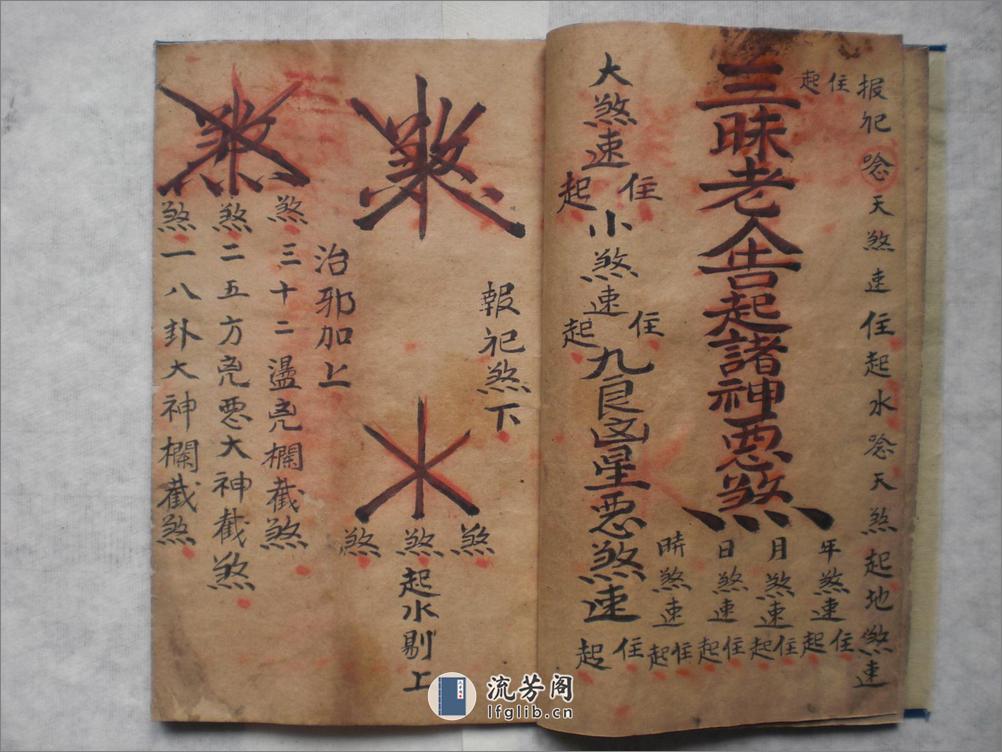 报祀唸天煞速住起水唸天煞起地煞速
住起
三昧老人告起諸神惡煞
年煞速住起
月煞速住起
日煞速住起
時煞速住起
大煞速住起小煞速住起九良凶星恶煞速住起
報祀煞下
煞
煞
煞
起水剔上
治邪加上
煞三十二盪兇欄截煞
煞二五方兇惡大神截煞
煞一八卦大神欄截煞
流芳阁
lfglib.cn